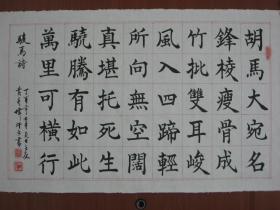 胡馬大宛名
鋒棱瘦骨成
竹批雙耳峻
風入四蹄輕
所向無空闊
真堪托死生
驍騰有如此
萬里可橫行
駿馬詩